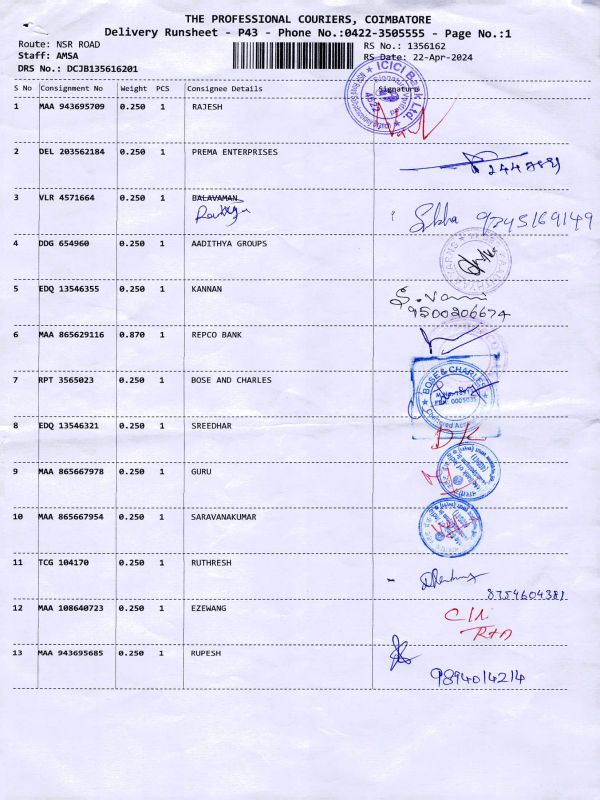 THE PROFESSIONAL COURIERS, COIMBATORE
Delivery Runsheet - P43 - Phone No.:0422-3505555 - Page No.:1
Route: NSR ROAD RS No.: 1356162
Staff: AMSA RS Date: 22-Apr-2024
DRS No.: DCJB135616201
S No Consignment No Weight PCS Consignee Details Signature
ICICI Bank Ltd.
1 MAA 943695709 0.250 1 RAJESH
2 DEL 203562184 0.250 1 PREMA ENTERPRISES
3 VLR 4571664 0.250 1 BALAVAMAN
9245169149
4 DDG 654960 0.250 1 AADITHYA GROUPS
5 EDQ 13546355 0.250 1 KANNAN
S. Vani
9500206674
6 MAA 865629116 0.870 1 REPCO BANK
7 RPT 3565023 0.250 1 BOSE AND CHARLES
BOSE & CHARLES
8 EDQ 13546321 0.250 1 SREEDHAR
DK
9 MAA 865667978 0.250 1 GURU
10 MAA 865667954 0.250 1 SARAVANAKUMAR
11 TCG 104170 0.250 1 RUTHRESH
8754604381
12 MAA 108640723 0.250 1 EZEWANG
13 MAA 943695685 0.250 1 RUPESH
9894014214